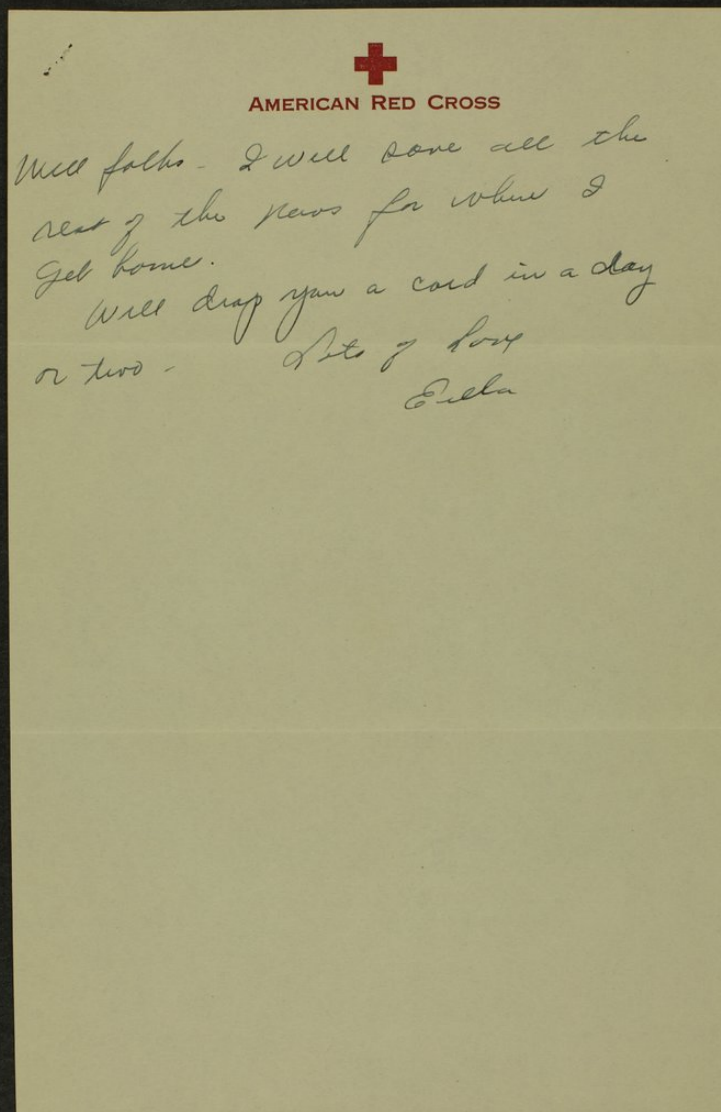 AMERICAN RED CROSS
Well folks - I will save all the
rest of the news for when I
get home.
Will drop you a card in a day
or two - Lots of Love